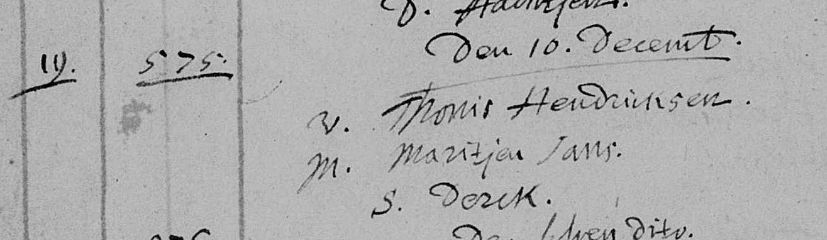 Den 10. Decemb.
19. 575.
v. Thonis Hendricksen.
m. Maritjen Jans.
s. Derck.
Den
dito.